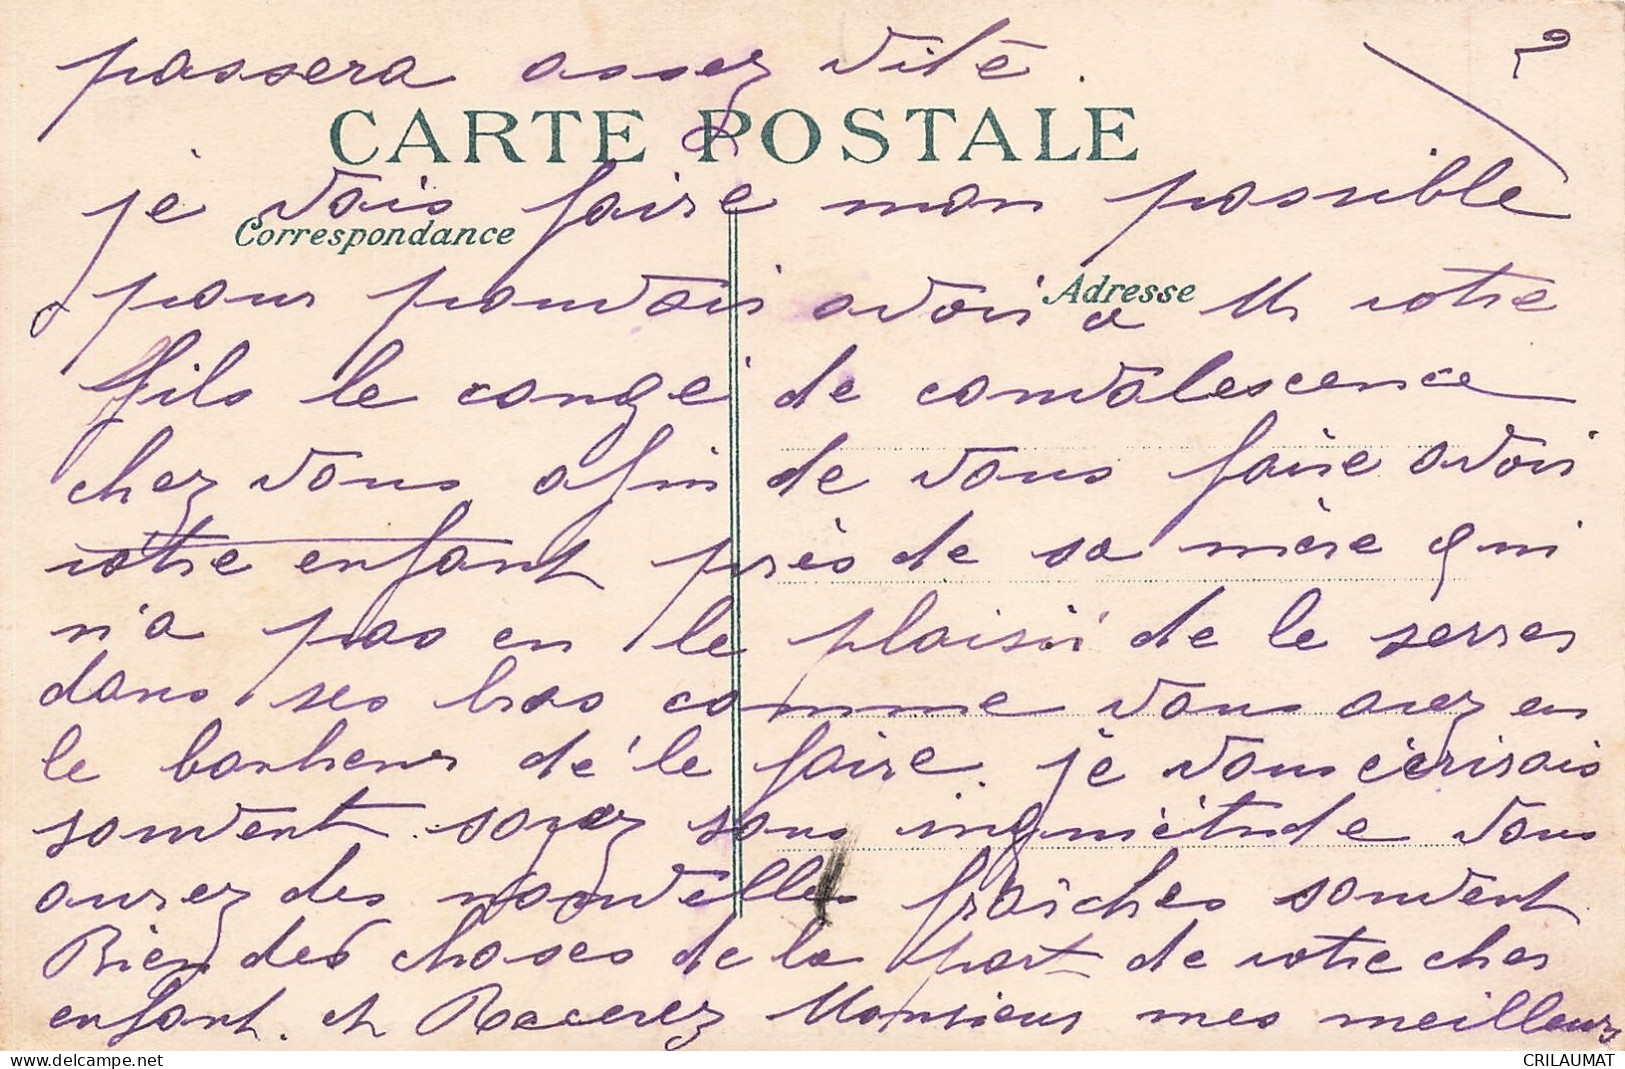 passera assez vite.
CARTE POSTALE
je vais faire mon possible
Correspondance
pour pouvoir avoir a Mr votre
Adresse
fils le congé de convalescence
chez vous afin de vous faire avoir
votre enfant près de sa mère qui
n'a pas eu le plaisir de le serrer
dans ses bras comme vous avez eu
le bonheur de le faire. je vous écrirais
souvent. soyez sans inquiétude vous
aurez des nouvelles fraiches souvent
Bien des choses de la part de votre cher
enfant. et Recevez Monsieur mes meilleurs
delcampe.net
CRILAUMAT